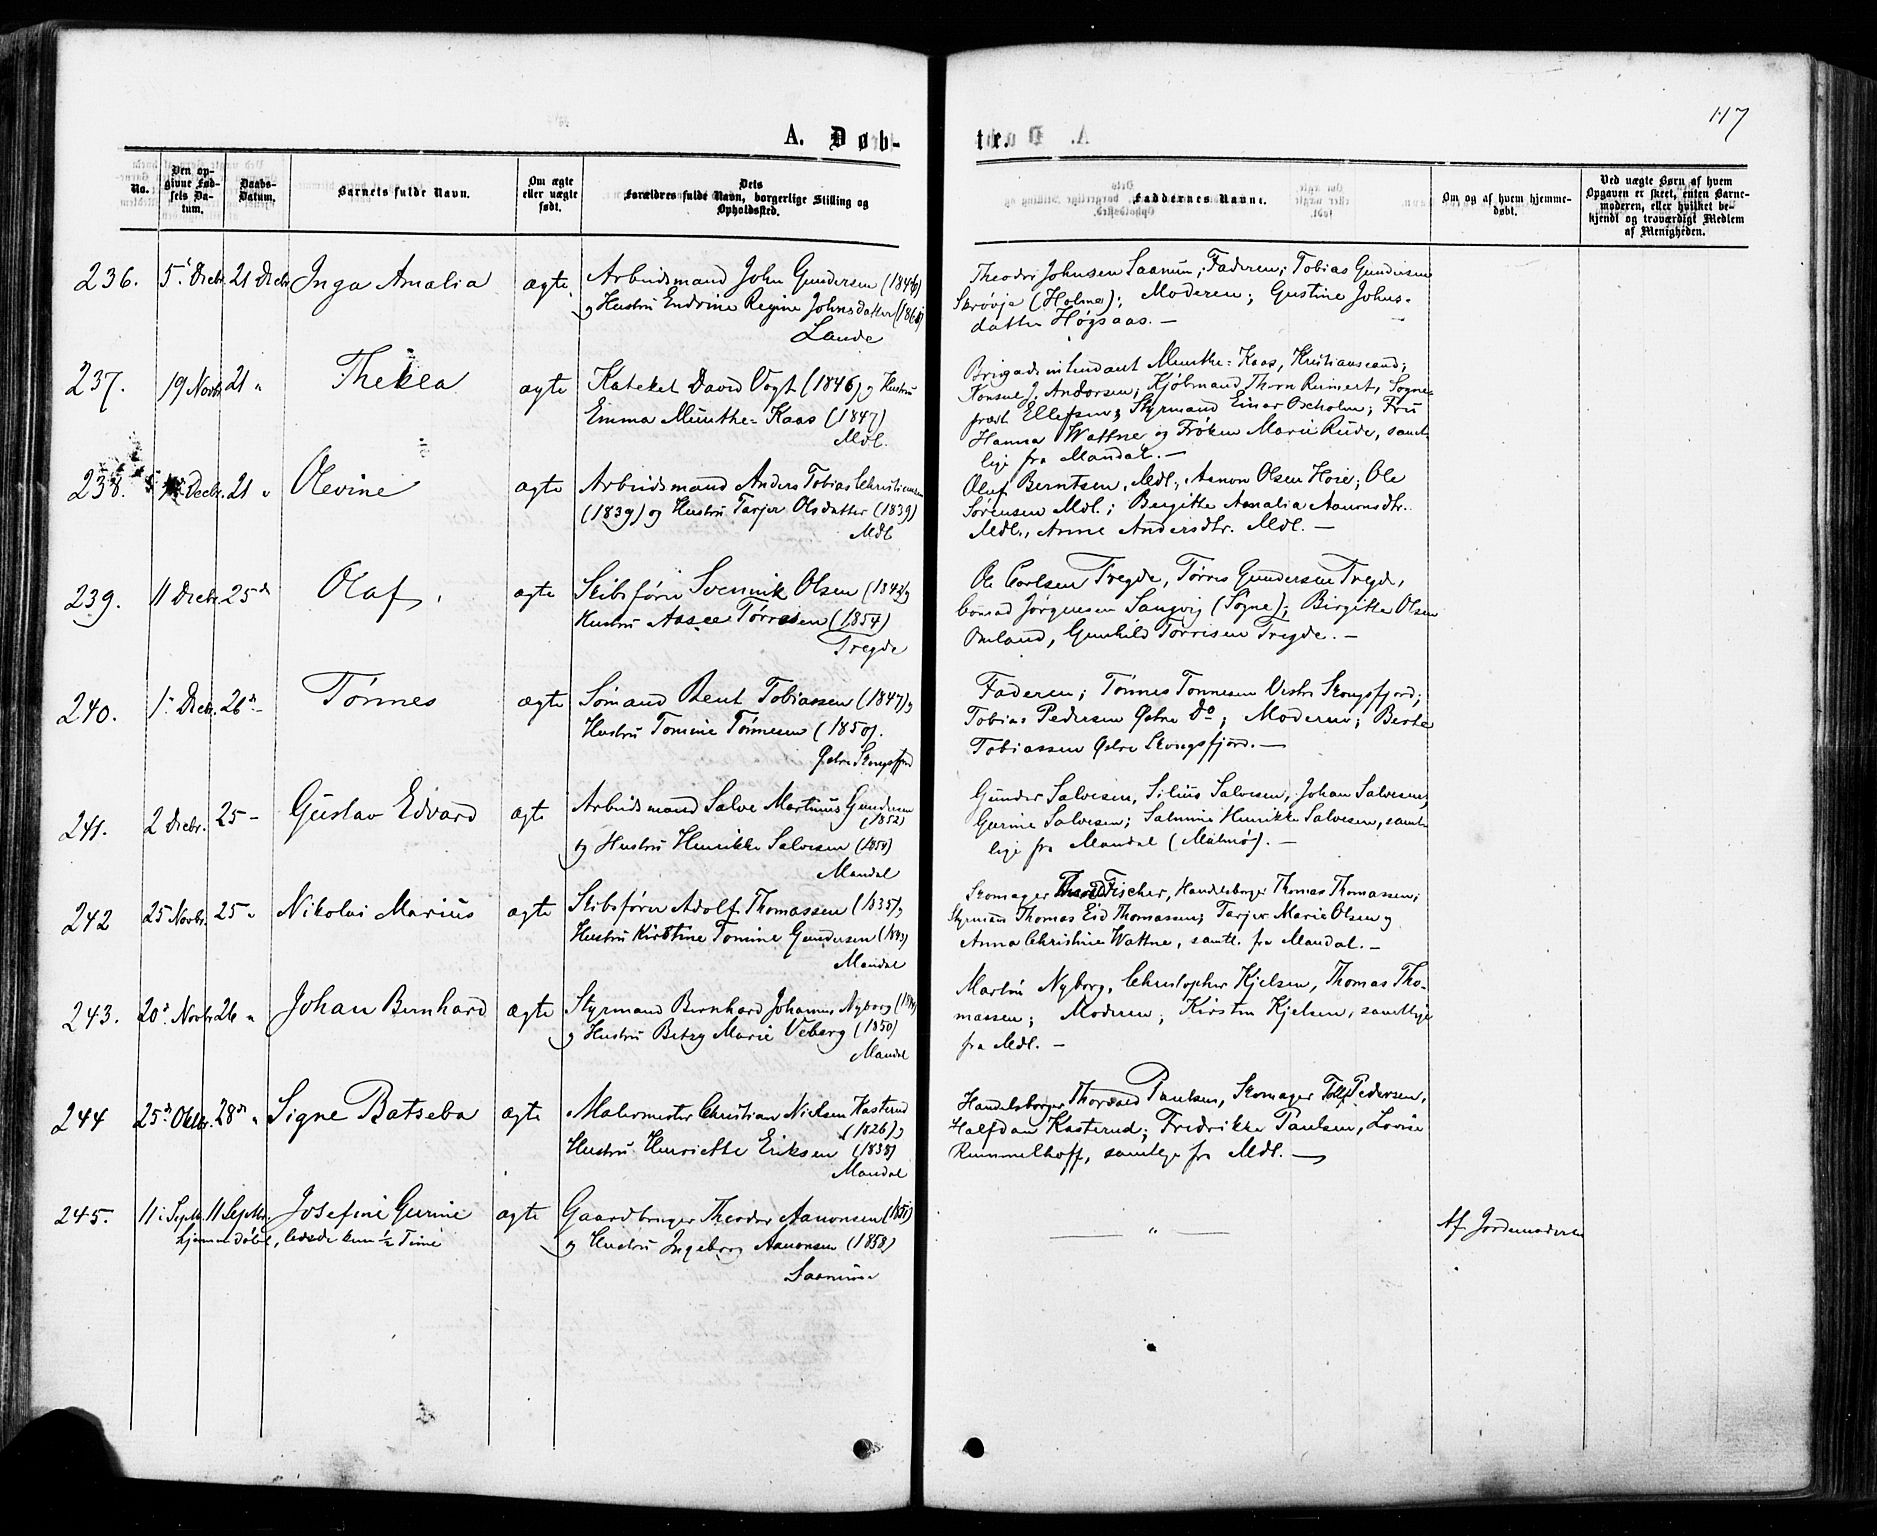 117
A. Døb-
te.
No.
Den op-
givne Fød-
sels Da-
tum.
Daabs-
Datum.
Barnets fulde Navn.
Om ægte
eller uægte
født.
Dets
Forældres fulde Navn, borgerlige Stilling og
Opholdssted.
Faddernes Navne.
Om og af hvem hjemme-
døbt.
Ved uægte Børn af hvem
Opgaven er skeet, enten Barne-
moderen, eller hvilket be-
kjendt og troværdigt Medlem
af Menigheden.
236. 5. Decbr. 21 Decbr. Inga Amalia ægte
Arbeidsmand John Gundersen (1846)
og Hustru Endrine Regine Johnsdatter
Lande
Theodor Johnsen Saanum; Faderen; Tobias Gundersen
Skrøvje (Holme); Moderen; Gustine Johns-
datter Høgsaas. —
237. 19 Novbr. 21 " Thekla ægte
Kateket David Vogt (1846) og Hustru
Emma Munthe-Kaas (1847)
Mdl.
Brigadeintendant Munthe-Kaas, Kristianssand;
Konsul J. Andorsen, Kjøbmand Thorn Reinert, Sogne-
præst Ellefsen; Styrmand Einar Oxholm; Fru
Hanna Wattne og Frøken Marie Rude, samt-
lige fra Mandal. —
238. Decbr. 21 " Olevine ægte
Arbeidsmand Anders Tobias Christiansen
(1839) og Hustru Tarjer Olsdatter (1839)
Mdl.
Oluf Berntsen, Mdl., Aanon Olsen Hoie; Ole
Sørensen Mdl.; Birgitte Amalia Aanonsdtr.
Mdl., Anne Andersdtr. Mdl. —
239. 11 Decbr. 25de Olaf. ægte
Skibsfører Svennik Olsen og
Hustru Aasee Tørresen (1854)
Tregde
Ole Carlsen Tregde, Tørres Gundersen Tregde,
Conrad Jørgensen Langvig (Søgne); Birgitte Olsen
Omland, Gunhild Tørrisen Tregde. —
240. 1. Decbr. 26de Tønnes ægte
Sømand Bent Tobiassen (1847) og
Hustru Tomine Tønnesen (1850).
Østre Skogsfjord
Faderen; Tønnes Tønnesen Vestre Skogsfjord;
Tobias Pedersen Østre Do; Moderen; Berte
Tobiassen Østre Skogsfjord. —
241. 2 Decbr. 25 — Gustav Edvard ægte
Arbeidsmand Salve Martinius Gundersen
(1852)
og Hustru Henrikke Salvesen (1850)
Mandal
Gunder Salvesen, Silius Salvesen, Johan Salvesen,
Gurine Salvesen; Salmine Henrikke Salvesen, samt-
lige fra Mandal (Malmø). —
242 25 Novbr. 25. " Nikolai Marius ægte
Skibsfører Adolf Thomassen (1835) og
Hustru Kirstine Tomine Gundersen (1843)
Mandal
Skomager Fischer, Handelsborger Thomas Thomassen;
Styrmand Thomas Eid Thomassen; Tarjer Marie Olsen og
Anna Christine Wattne, samtl. fra Mandal. —
243. 20de Novbr. 26 " Johan Bernhard ægte
Styrmand Bernhard Johannes Nyborg
og Hustru Betzy Marie Veberg (1850)
Mandal
Martin Nyborg, Christopher Kjelsen, Thomas Tho-
massen; Moderen; Kirsten Kjelsen, samtlige
fra Mdl. —
244 25de Oktbr. 28de " Signe Batseba ægte
Malermester Christian Nielsen Kasterud
(1826) og
Hustru Henriette Eriksen (1838)
Mandal
Handelsborger Thorvald Paulsen, Skomager Tollf. Pedersen,
Halfdan Kasterud; Fredrikke Paulsen, Lovise
Rummelhoff, samtlige fra Mdl. —
245. 11. Septbr. 11 Septbr. Josefine Gurine ægte
hjemmedøbt, levede kun ½ Time
Gaardbruger Theodor Aanonsen (1851)
og Hustru Ingeborg Aanonsen (1858)
Saanum
— " —
Af Jordemoderen